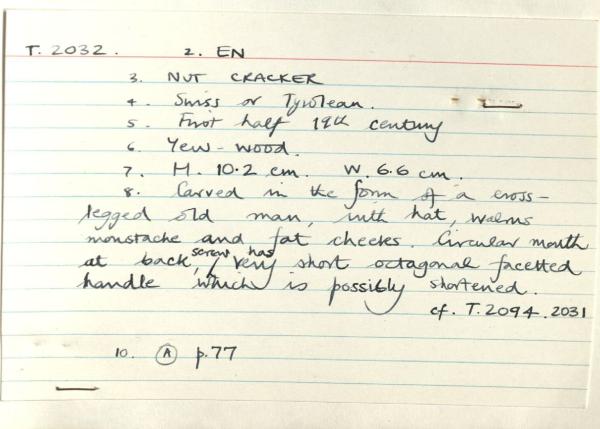 T. 2032. 2. EN
3. NUT CRACKER
4. Swiss or Tyrolean.
5. First half 19th century
6. Yew-wood.
7. H. 10.2 cm. W. 6.6 cm.
8. Carved in the form of a cross-
legged old man, with hat, walrus
moustache and fat cheeks. Circular mouth
at back, screw has very short octagonal facetted
handle which is possibly shortened.
cf. T. 2094. 2031
10. A p.77